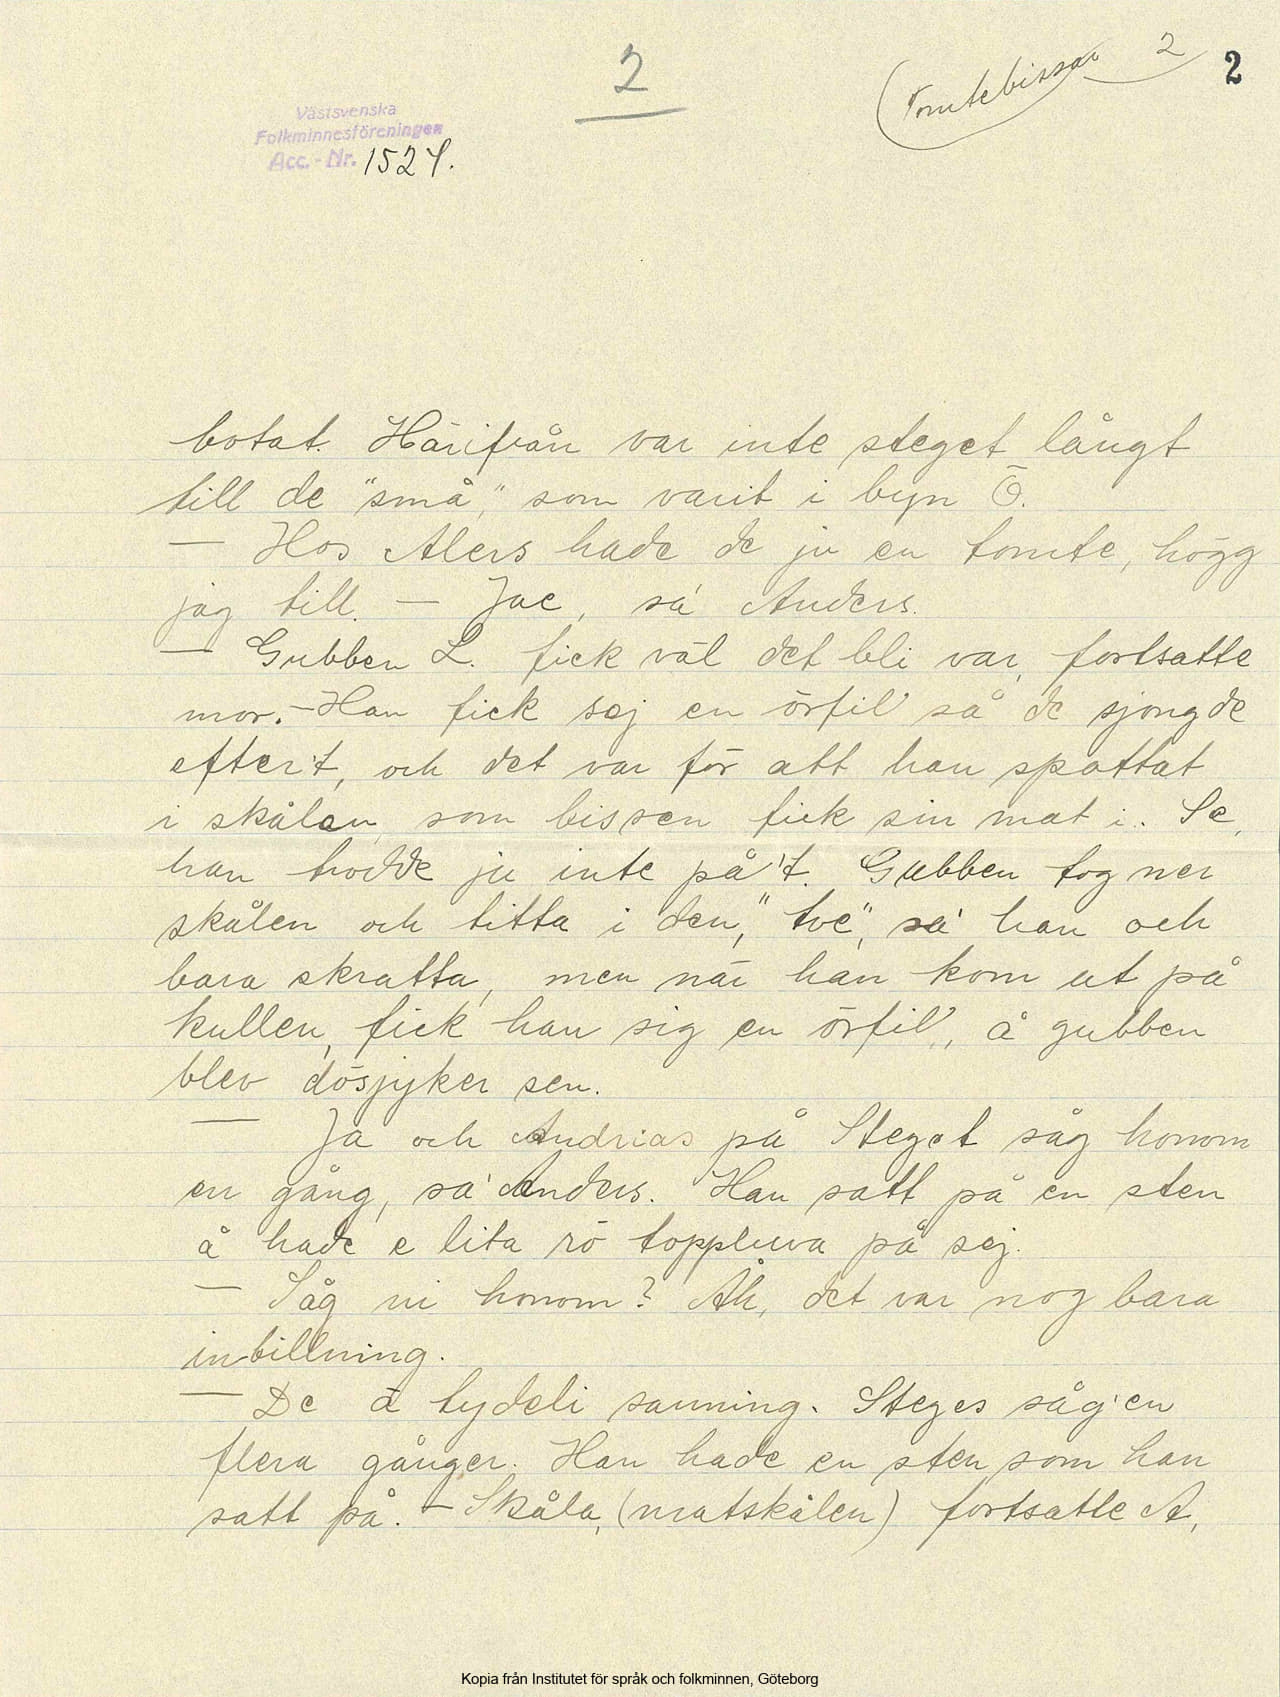 2
(Tomtebissar 2
2
Västsvenska
Folkminnesföreningen
Acc.-Nr. 1524.
botat. Härifrån var inte steget långt
till de "små," som varit i byn Ö.
— Hos Alers hade de ju en tomte, högg
jag till. — Jae, sa' Anders.
— Gubben L. fick väl det bli var, fortsatte
mor. – Han fick sej en örfil så de sjongde
efter't, och det var för att han spottat
i skålen, som bissen fick sin mat i. Se,
han trodde ju inte på't. Gubben tog ner
skålen och titta i den, "tve", sa' han och
bara skratta, men när han kom ut på
kullen, fick han sig en örfil, å gubben
blev dösjyker sen.
— Ja och Andrias på Steget såg honom
en gång, sa' Anders. Han satt på en sten
å hade e lita rö toppluva på sej.
— Såg ni honom? Åh, det var nog bara
inbillning.
— De ä tydeli sanning. Steges såg'en
flera gånger. Han hade en sten som han
satt på. – Skåla, (matskålen) fortsatte A,
Kopia från Institutet för språk och folkminnen, Göteborg